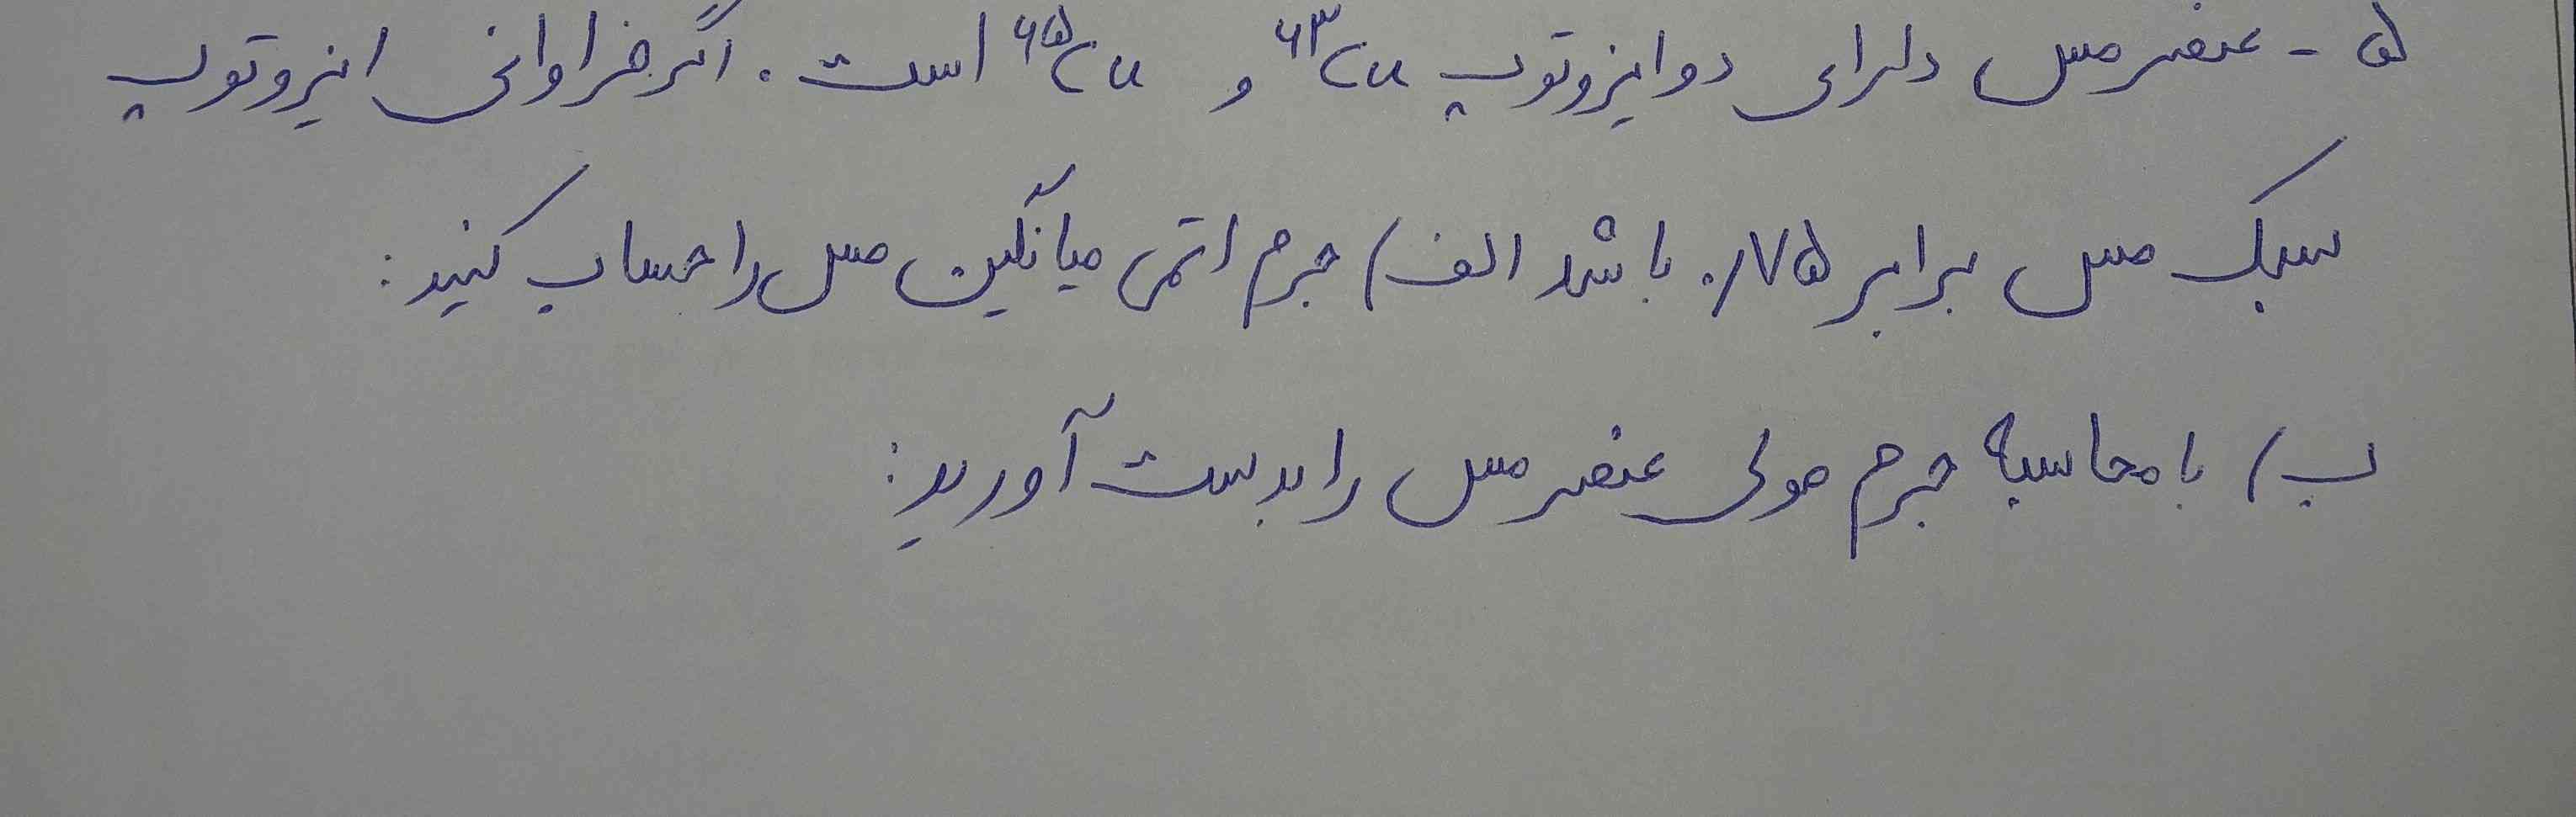 ۵ - عنصر مس دارای دو ایزوتوپ ⁶³Cu و ⁶⁵Cu است . اگر فراوانی ایزوتوپ
سبک مس برابر ۷۵٪ باشد الف) جرم اتمی میانگین مس را حساب کنید :
ب) با محاسبه جرم مولی عنصر مس را بدست آورید :